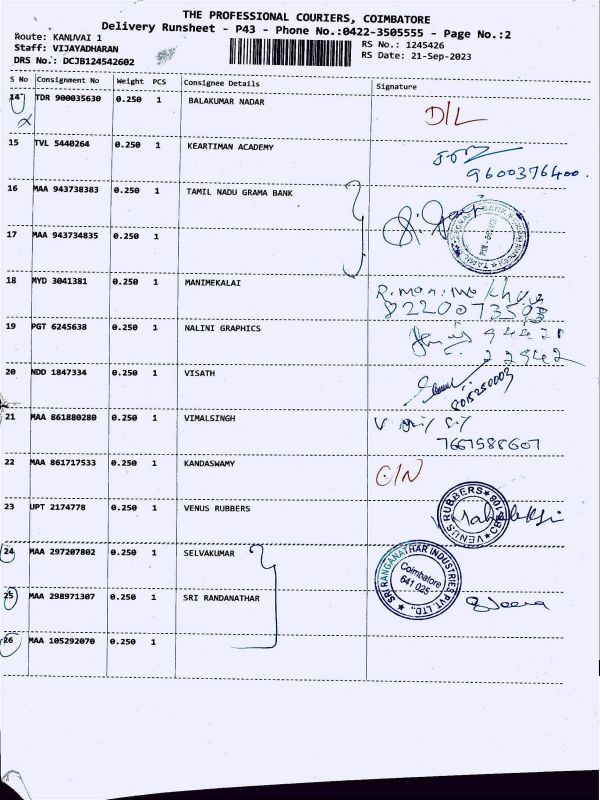 THE PROFESSIONAL COURIERS, COIMBATORE
Delivery Runsheet - P43 - Phone No.:0422-3505555 - Page No.:2
Route: KANUVAI 1
RS No.: 1245426
Staff: VIJAYADHARAN
RS Date: 21-Sep-2023
DRS No.: DCJB124542602
S No Consignment No Weight PCS Consignee Details Signature
14 TDR 900035630 0.250 1 BALAKUMAR NADAR D/L
15 TVL 5440264 0.250 1 KEARTIMAN ACADEMY
9600376400.
16 MAA 943738383 0.250 1 TAMIL NADU GRAMA BANK
17 MAA 943734835 0.250 1
18 MYD 3041381 0.250 1 MANIMEKALAI
19 PGT 6245638 0.250 1 NALINI GRAPHICS
22942
20 NDD 1847334 0.250 1 VISATH
8015250003
21 MAA 861880280 0.250 1 VIMALSINGH
7667588607
22 MAA 861717533 0.250 1 KANDASWAMY C/N
23 UPT 2174778 0.250 1 VENUS RUBBERS
VENUS RUBBERS
24 MAA 297207802 0.250 1 SELVAKUMAR
SRI RANGANATHAR INDUSTRIES PVT. LTD.,
Coimbatore
641 025
25 MAA 298971307 0.250 1 SRI RANDANATHAR
26 MAA 105292070 0.250 1